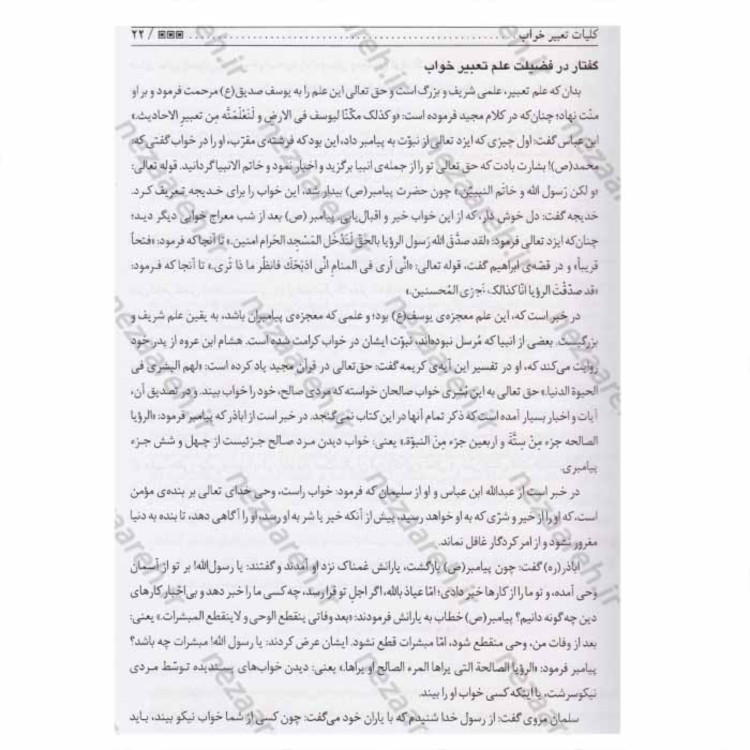 کلیات تعبیر خواب ........ / ۲۲
گفتار در فضیلت علم تعبیر خواب
بدان که علم تعبیر، علمی شریف و بزرگ است و حق تعالی این علم را به یوسف صدیق(ع) مرحمت فرمود و بر او
منّت نهاد؛ چنان‌که در کلام مجید فرموده است: «و کذلک مکّنّا لیوسف فی الارض و لنُعلّمَنّه مِن تعبیر الاحادیث.»
ابن عباس گفت: اول چیزی که ایزد تعالی از نبوّت به پیامبر داد، این بود که فرشته‌ی مقرّب، او را در خواب گفتی که:
محمد(ص)! بشارت بادت که حق تعالی تو را از جمله‌ی انبیا برگزید و اختیار نمود و خاتم الانبیا گردانید. قوله تعالی:
«و لکن رَسول الله و خاتَم النبییّن.» چون حضرت پیامبر(ص) بیدار شد، این خواب را برای خدیجه تعریف کرد.
خدیجه گفت: دل خوش دار، که از این خواب خیر و اقبال یابی. پیامبر (ص) بعد از شب معراج خوابی دیگر دید؛
چنان‌که ایزد تعالی فرمود: «لقد صدَّق الله رَسول الرؤیا بالحقّ لَتَدْخُل المَسْجِد الحَرام امنین.» تا آنجا که فرمود: «فتحاً
قریباً» و در قصّه‌ی ابراهیم گفت، قوله تعالی: «انّی اَری فی المنام اَنّی اذبَحُك فانظُر ما ذا تَری.» تا آنجا که فرمود:
«قد صدّقْتَ الرؤیا انّا کذالک نَجزی المُحسنین.»
در خبر است که، این علم معجزه‌ی یوسف(ع) بود؛ و علمی که معجزه‌ی پیامبران باشد، به یقین علم شریف و
بزرگیست. بعضی از انبیا که مُرسل نبوده‌اند، نبوّت ایشان در خواب کرامت شده است. هشام ابن عروه از پدر خود
روایت می‌کند که، او در تفسیر این آیه‌ی کریمه گفت: حق‌تعالی در قرآن مجید یاد کرده است: «لهم البشری فی
الحیوة الدنیا.» حق تعالی به این بُشری خواب صالحان خواسته که مردی صالح، خود را خواب بیند. و در تصدیق آن،
آیات و اخبار بسیار آمده است که ذکر تمام آنها در این کتاب نمی‌گنجد. در خبر است از اباذر که پیامبر فرمود: «الرؤیا
الصالحه جزء مِنْ سِتَّة و اربعین جزء مِنَ النبوّة.» یعنی: خواب دیدن مرد صالح جزئیست از چهل و شش جزء
پیامبری.
در خبر است از عبدالله ابن عباس و او از سلیمان که فرمود: خواب راست، وحی خدای تعالی بر بنده‌ی مؤمن
است، که او را از خیر و شرّی که به او خواهد رسید، پیش از آنکه خیر یا شر به او رسد، او را آگاهی دهد، تا بنده به دنیا
مغرور نشود و از امر کردگار غافل نماند.
اباذر(ره) گفت: چون پیامبر(ص) بازگشت، یارانش غمناک نزد او آمدند و گفتند: یا رسول‌الله! بر تو از آسمان
وحی آمده، و تو ما را از کارها خبر دادی؛ امّا عیاذ بالله، اگر اجل تو فرا رسد، چه کسی ما را خبر دهد و بی‌اخبار کارهای
دین چه‌گونه دانیم؟ پیامبر(ص) خطاب به یارانش فرمودند: «بعد وفاتی ینقطع الوحی و لا ینقطع المبشرات.» یعنی:
بعد از وفات من، وحی منقطع شود، امّا مبشرات قطع نشود. ایشان عرض کردند: یا رسول الله! مبشرات چه باشد؟
پیامبر فرمود: «الرؤیا الصالحة التی یراها المرء الصالح او یراها.» یعنی: دیدن خواب‌های پسندیده توسّط مردی
نیکوسرشت، یا اینکه کسی خواب او را بیند.
سلمان مروی گفت: از رسول خدا شنیدم که با یاران خود می‌گفت: چون کسی از شما خواب نیکو بیند، باید